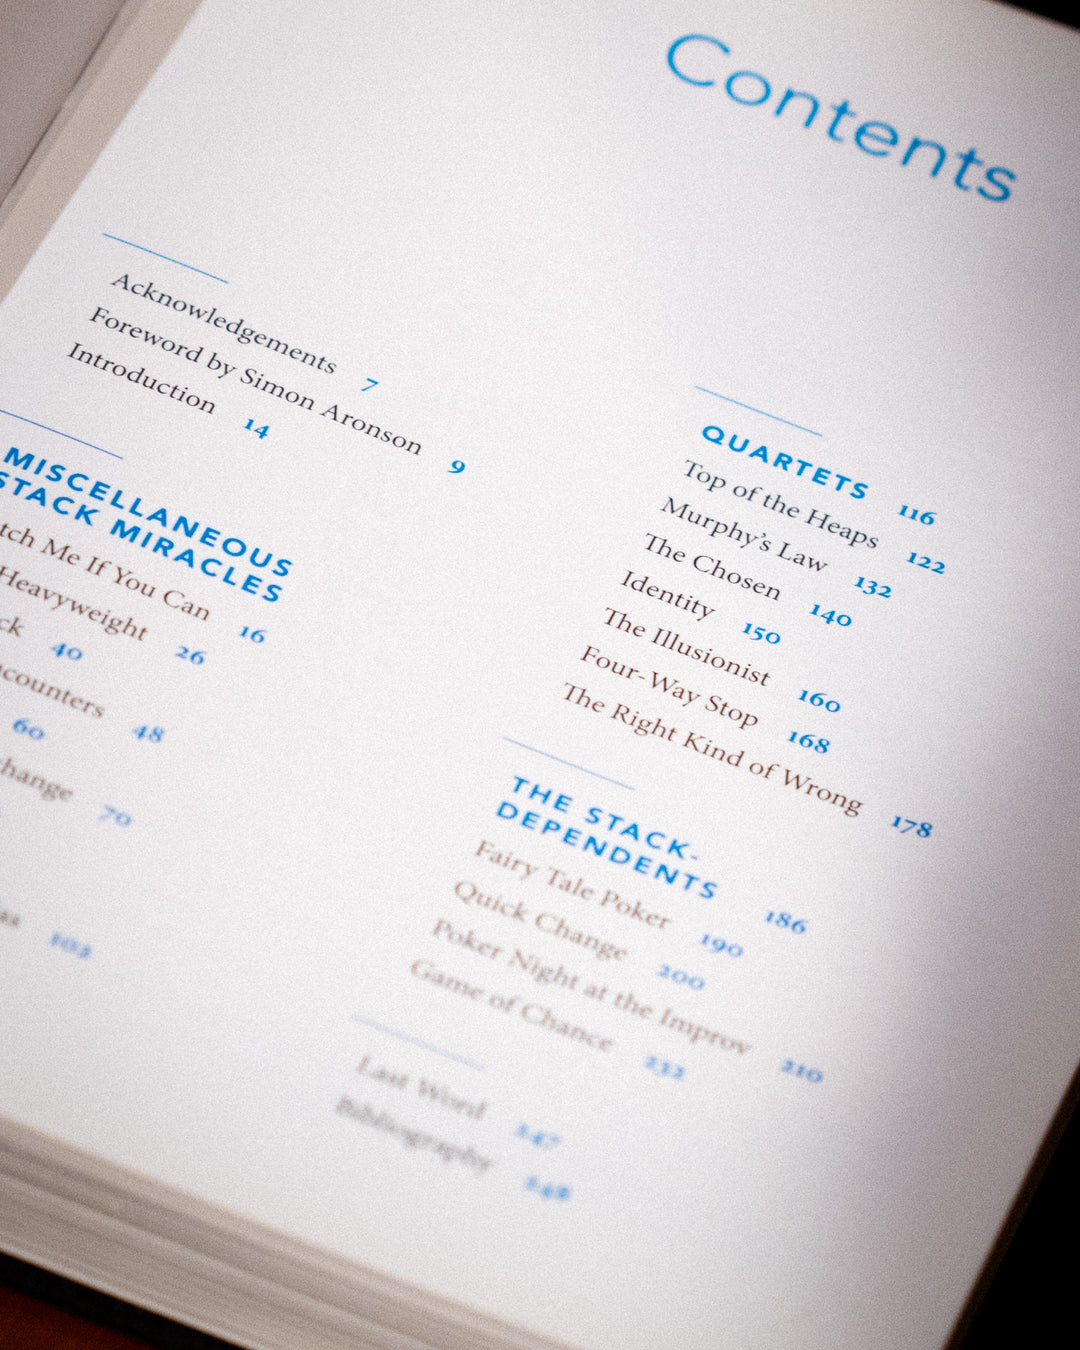 Contents
Acknowledgements 7
Foreword by Simon Aronson 9
Introduction 14
MISCELLANEOUS
STACK MIRACLES
tch Me If You Can 16
Heavyweight 26
ck 40
counters 48
60
hange 70
102
QUARTETS 116
Top of the Heaps 122
Murphy's Law 132
The Chosen 140
Identity 150
The Illusionist 160
Four-Way Stop 168
The Right Kind of Wrong 178
THE STACK-
DEPENDENTS 186
Fairy Tale Poker 190
Quick Change 200
Poker Night at the Improv 210
Game of Chance 232
Last Word 247
Bibliography 248